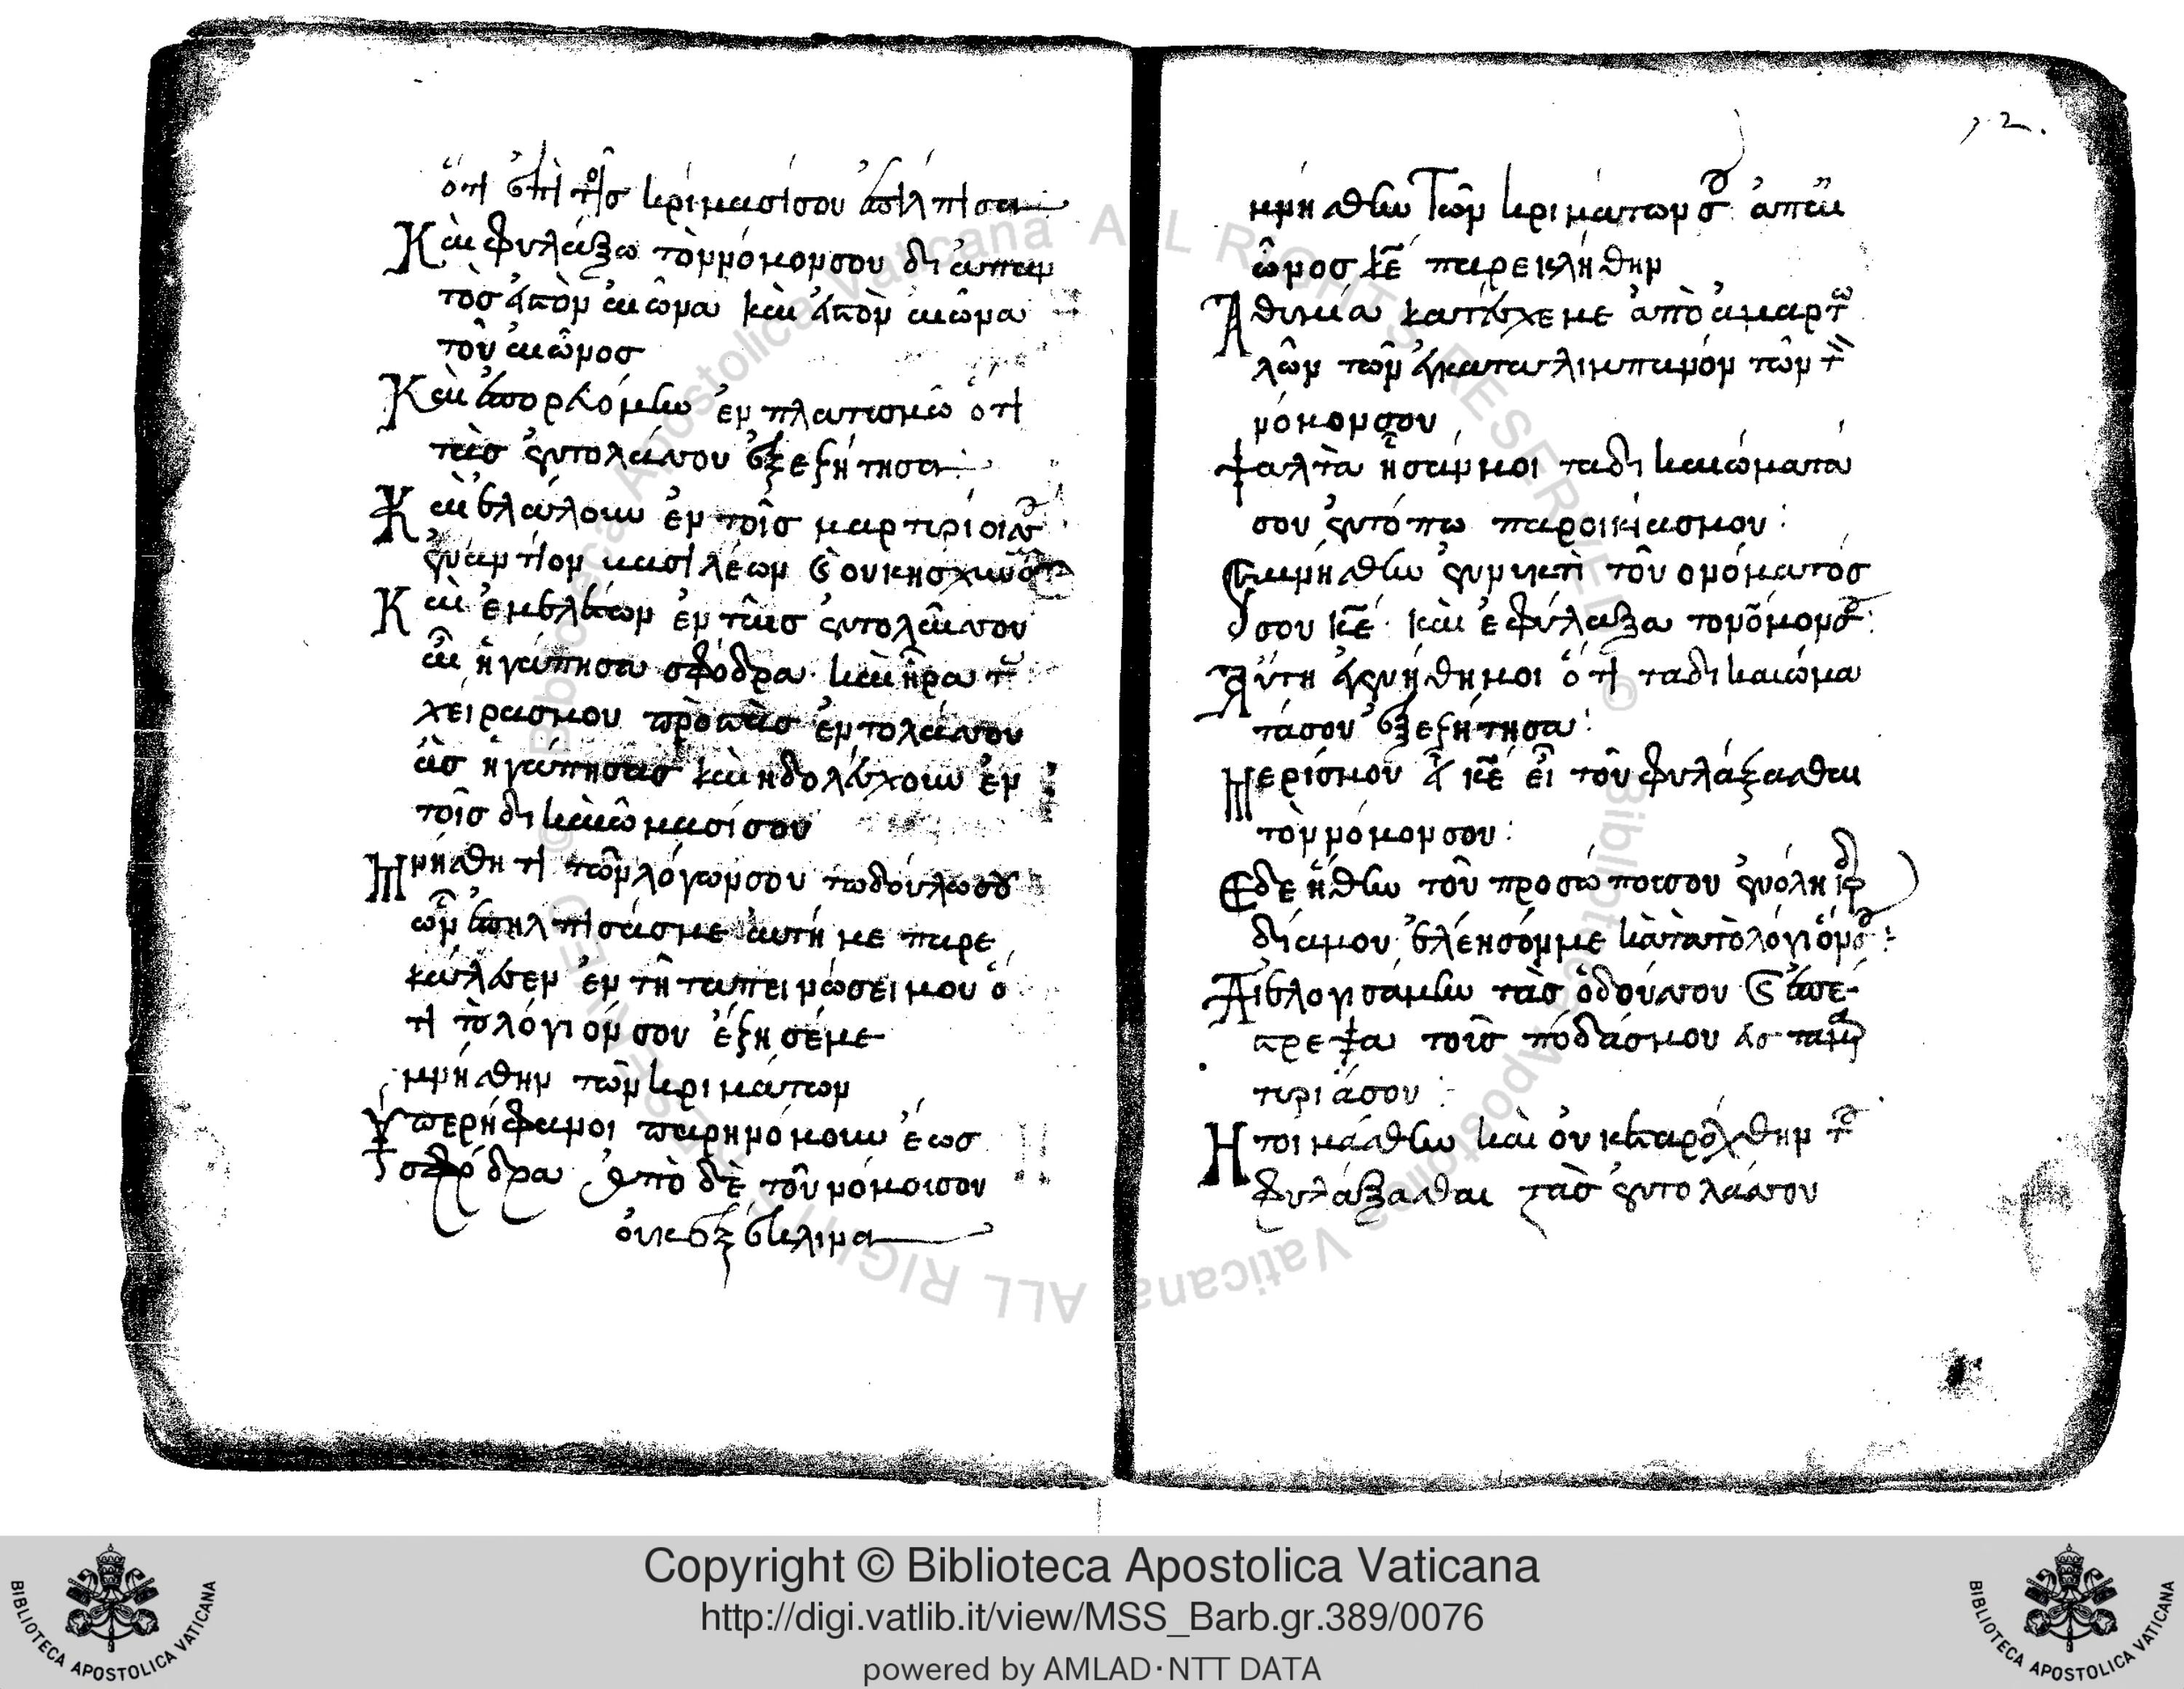 ὅτι ἐπὶ τοῖσ κρίμασίσου ἐπίλπισα
Καὶ φυλάξω τὸννόμονσου διάπαν
τοσ εἰσ τὸν αἰῶνα καὶ εἰσ τὸν αἰῶνα
τοῦ αἰῶνοσ
Καὶ ἐπορευόμην ἐν πλατισμῶ ὁτι
τὰσ ἐντολάσσου ἐξεζήτησα
Καὶ ἐλάλουν ἐν τοῖσ μαρτιρίοισ
ἐναντίον βασιλέων
Καὶ ἐμελέτων ἐν ταῖσ ἐντολαῖσσου
αἷσ ἠγάπησα σφόδρα καὶ ἦρα τ
χείρασμου πρὸσ τὰσ ἐντολάσσου
ἃσ ἠγάπησασ καὶ ηδολέσχουν ἐν
τοῖσ δικαιώμασίσου
Μνήσθητι τῶνλόγωνσου τωδούλωσου
ὧν ἐπηλπισάσμε αυτή με παρε
κάλεσεν ἐν τῆ ταπεινώσει μου ὁ
τι τὸ λόγιόν σου ἔζησέμε
μνήσθην τῶν κριμάτων
ὑπερήφανοι παρηνόμουν ἕωσ
σφόδρα ἀπὸ δὲ τοῦ νόμουσου
οὐκ ἐξέκλινα
12.
μνήσθην Τῶν κριμάτωνσου ἀπαι
ῶνοσ κε παρεκλήθην
Ἀθυμία κατέσχεμε ἀπὸ ἁμαρτω
λῶν τῶν ἐγκαταλιμπανόν των τ
νόμονσου
ψαλτὰ ἦσάνμοι ταδικαιώματά
σου ἐντόπω παροικίασμου:
Ἐμνήσθην ἐννυκτὶ τοῦ ονόματόσ
σου κε καὶ ἐφύλαξα τονόμονσου:
Αὕτη ἐγενήθημοι ὅτι ταδικαιώμα
τάσου ἐξεζήτησα:
Μερίσμου εἶ κε εἶ τοῦ φυλάξασθαι
τὸν νόμον σου:
Ἐδεήθην τοῦ προσώπουσου ἐνόλη καρ
δίαμου, ἐλέησόνμε κατὰτὸλόγιόνσου:
Διελογισάμην τὰσ ὁδούσσου καὶ ἐπέ
στρεψα τοὺσ πόδασμου εἰσ ταμαρ
τιριάσου:
Ἡτοιμάσθην καὶ οὐκ ἐταράχθην τοῦ
φυλάξασθαι τὰσ ἐντολάσσου
Copyright © Biblioteca Apostolica Vaticana
http://digi.vatlib.it/view/MSS_Barb.gr.389/0076
powered by AMLAD·NTT DATA
BIBLIOTECA APOSTOLICA VATICANA
BIBLIOTECA APOSTOLICA VATICANA